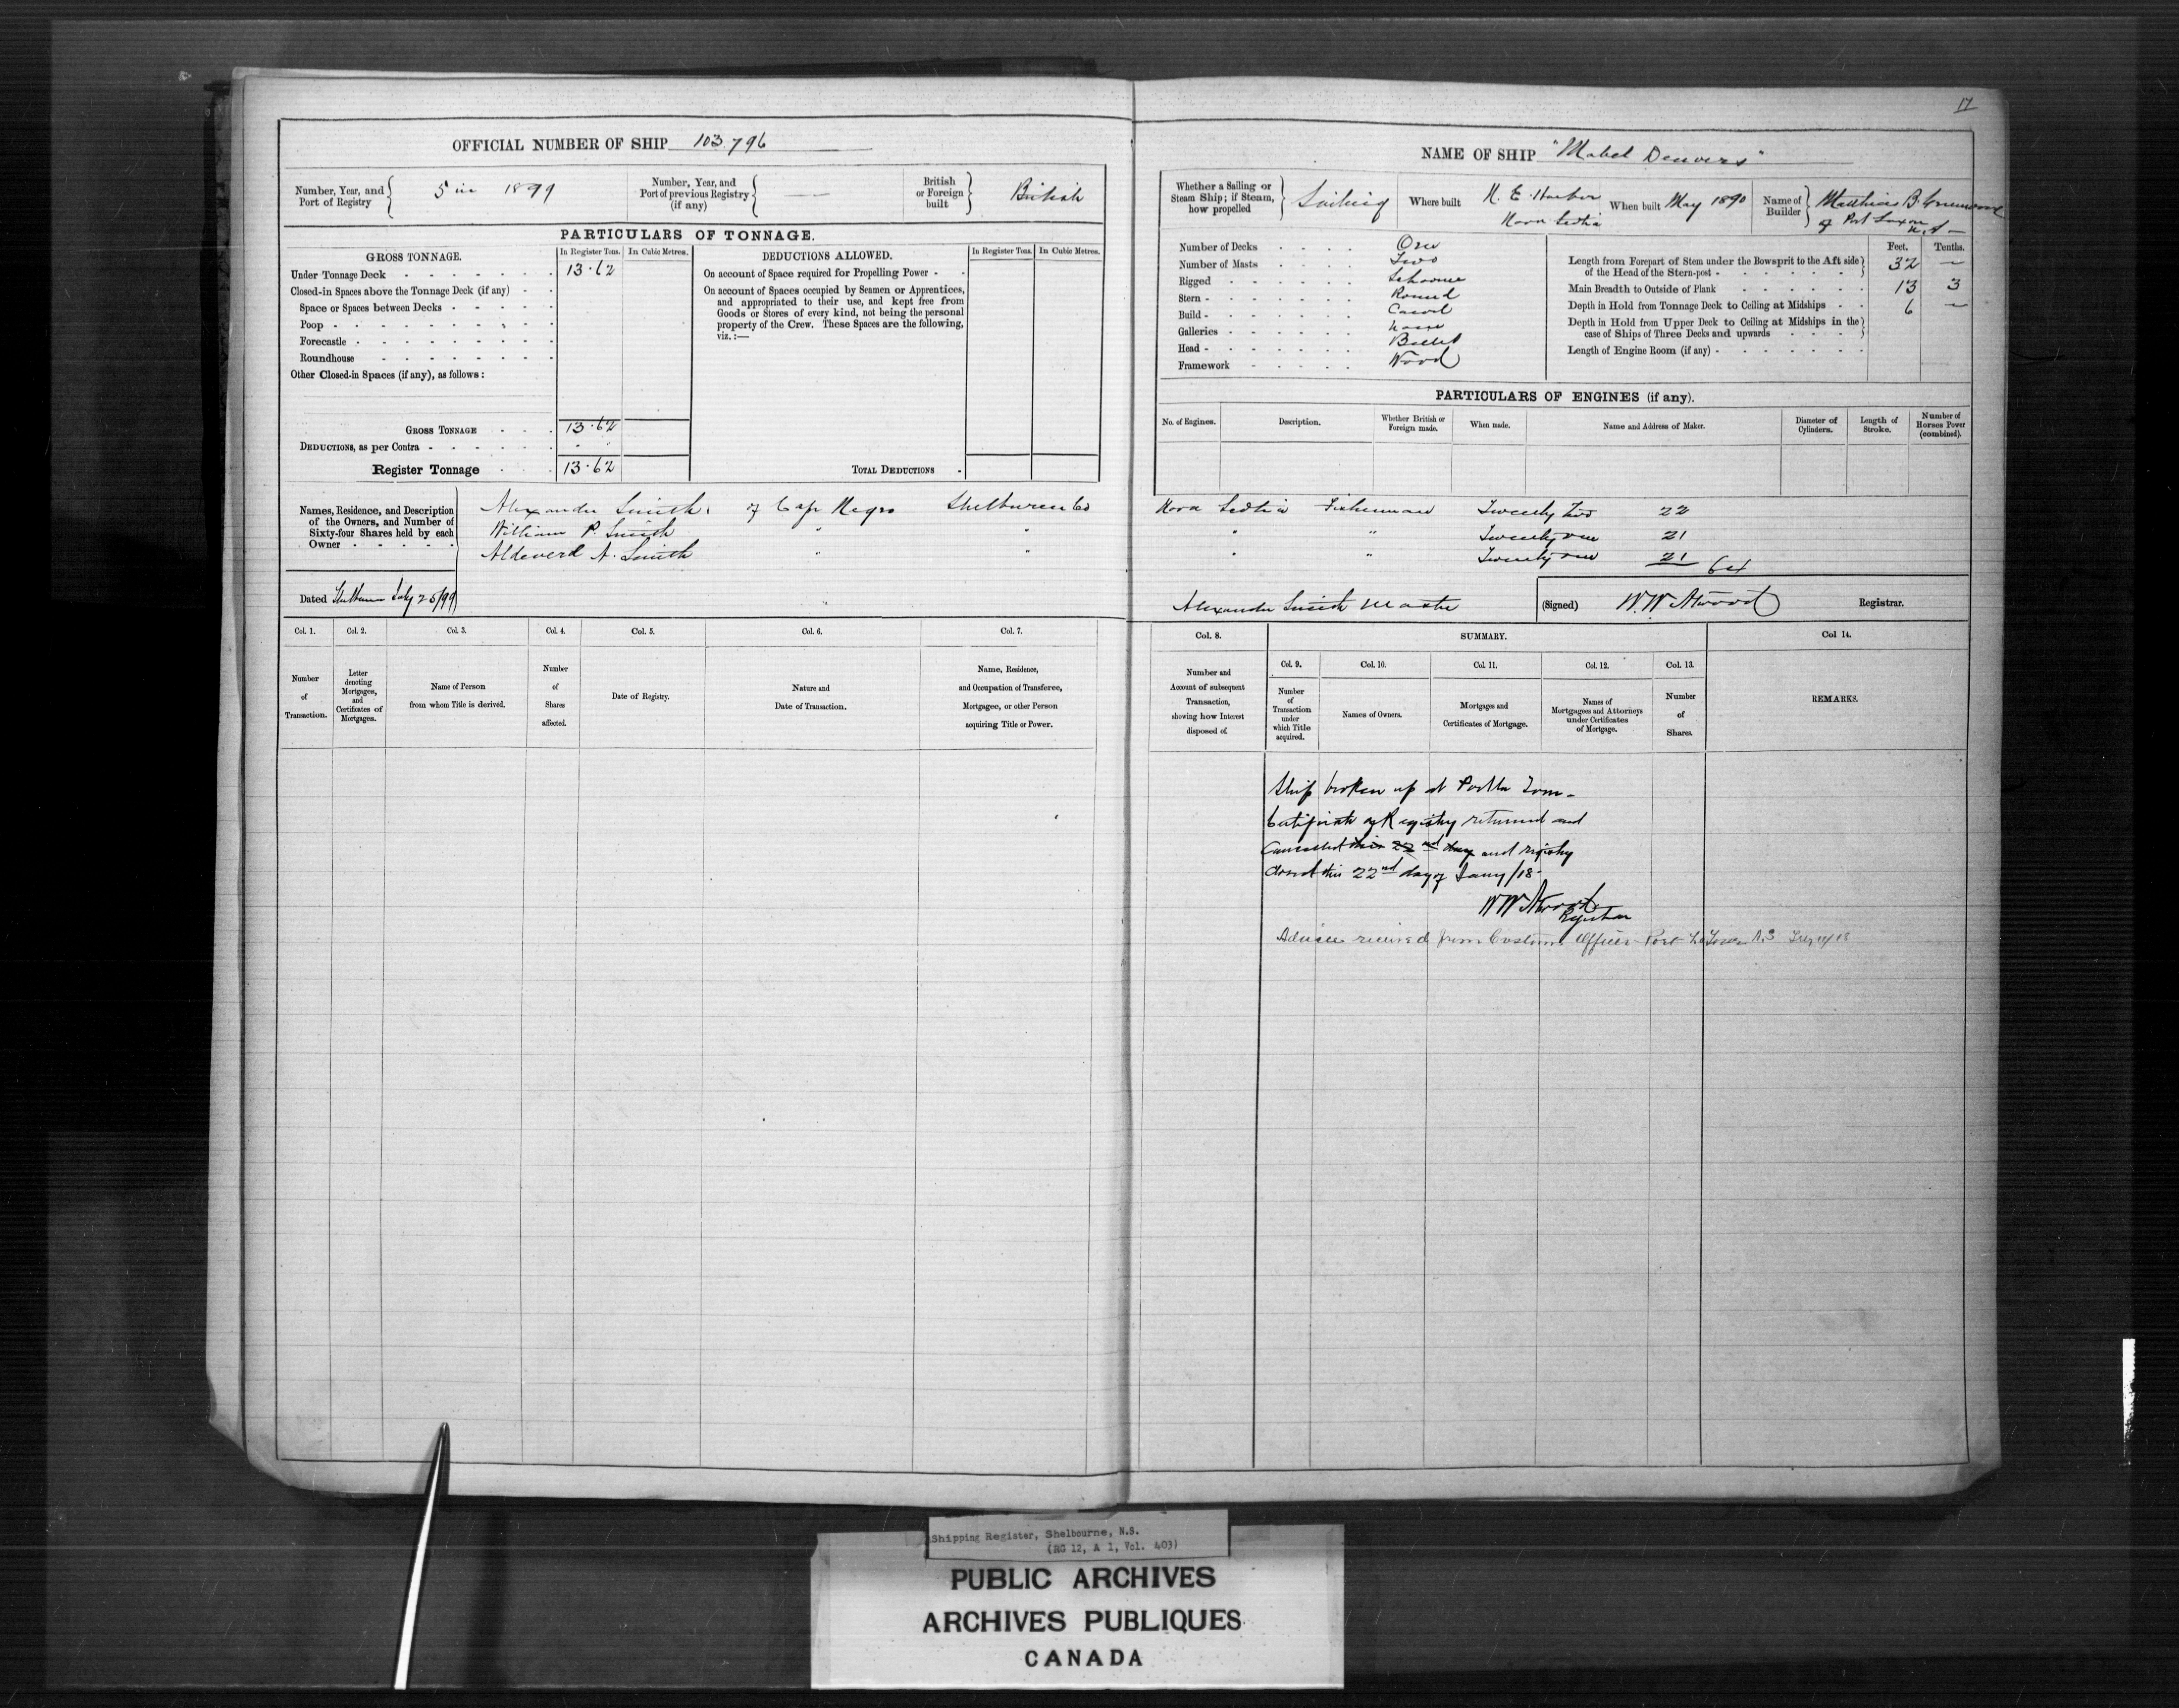 17
OFFICIAL NUMBER OF SHIP 103,796
Number, Year, and Port of Registry 5 in 1899
Number, Year, and Port of previous Registry (if any) —
British or Foreign built British
PARTICULARS OF TONNAGE.
GROSS TONNAGE. In Register Tons. In Cubic Metres.
Under Tonnage Deck 13.62
Closed-in Spaces above the Tonnage Deck (if any)
Space or Spaces between Decks
Poop
Forecastle
Roundhouse
Other Closed-in Spaces (if any), as follows:
GROSS TONNAGE 13.62
DEDUCTIONS, as per Contra
Register Tonnage 13.62
DEDUCTIONS ALLOWED. In Register Tons. In Cubic Metres.
On account of Space required for Propelling Power
On account of Spaces occupied by Seamen or Apprentices,
and appropriated to their use, and kept free from
Goods or Stores of every kind, not being the personal
property of the Crew. These Spaces are the following,
viz.:—
TOTAL DEDUCTIONS
NAME OF SHIP "Mabel Denvers"
Whether a Sailing or Steam Ship; if Steam, how propelled Sailing
Where built N. E. Harbor Nova Scotia
When built May 1890
Name of Builder Matthias B. Greenwood of Port Saxon N.S —
Number of Decks One
Number of Masts Two
Rigged Schooner
Stern Round
Build Carvel
Galleries None
Head Billet
Framework Wood
Feet. Tenths.
Length from Forepart of Stem under the Bowsprit to the Aft side of the Head of the Stern-post 32 —
Main Breadth to Outside of Plank 13 3
Depth in Hold from Tonnage Deck to Ceiling at Midships 6 —
Depth in Hold from Upper Deck to Ceiling at Midships in the case of Ships of Three Decks and upwards
Length of Engine Room (if any)
PARTICULARS OF ENGINES (if any).
No. of Engines. Description. Whether British or Foreign made. When made. Name and Address of Maker. Diameter of Cylinders. Length of Stroke. Number of Horses Power (combined).
Names, Residence, and Description of the Owners, and Number of Sixty-four Shares held by each Owner
Alexander Smith, of Cape Negro Shelburne Co Nova Scotia Fisherman Twenty two 22
William P. Smith " " " " Twenty one 21
Aldeverd A. Smith " " " " Twenty one 21 64
Dated Shelburne July 25/99
Alexander Smith Master (Signed) W.W. Atwood Registrar.
Col. 1. Col. 2. Col. 3. Col. 4. Col. 5. Col. 6. Col. 7. Col. 8. SUMMARY. Col 14.
Col. 9. Col. 10. Col. 11. Col. 12. Col. 13.
Number of Transaction.
Letter denoting Mortgages, and Certificates of Mortgages.
Name of Person from whom Title is derived.
Number of Shares affected.
Date of Registry.
Nature and Date of Transaction.
Name, Residence, and Occupation of Transferee, Mortgagee, or other Person acquiring Title or Power.
Number and Account of subsequent Transaction, showing how Interest disposed of.
Number of Transaction under which Title acquired.
Names of Owners.
Mortgages and Certificates of Mortgage.
Names of Mortgagees and Attorneys under Certificates of Mortgage.
Number of Shares.
REMARKS.
Ship broken up at Port La Tour.
Certificate of Registry returned and
Cancelled this 22nd day and registry
closed this 22nd day of Jany/18
W W Atwood
Registrar
Advice received from Customs Officer Port La Tour N.S
Shipping Register, Shelbourne, N.S.
(RG 12, A 1, Vol. 403)
PUBLIC ARCHIVES
ARCHIVES PUBLIQUES
CANADA